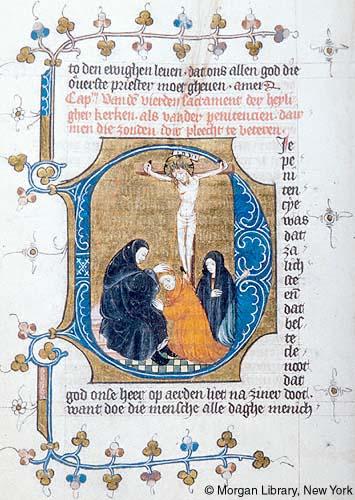 to den ewighen leuen. dat ons allen god die
ouerste priester moet gheuen. amen
Cap^m. Vanden vierden sacrament der heyli
gher kerken. als vander penitencien. daer
men die zonden voir pleecht te beteren.
D
Ie
pe
ni
ten
cye
was
dat
za
lich
ste
ende
dat
bes
te
cle
noot
dat
god onse heer op aerden liet na zinre doot.
want doe die mensche alle daghe menich
© Morgan Library, New York